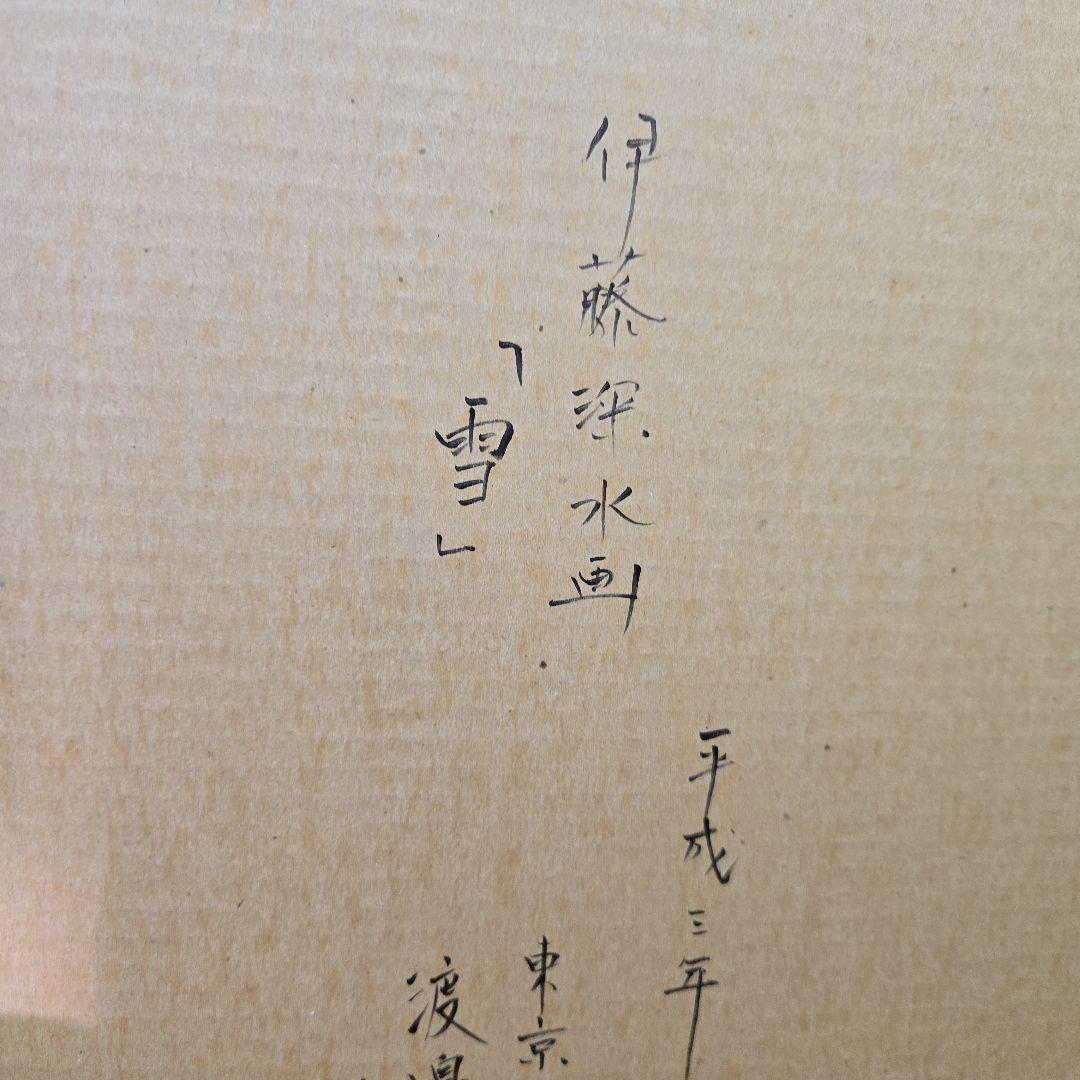 伊藤深水画
「雪」
平成三年
東京
渡邊